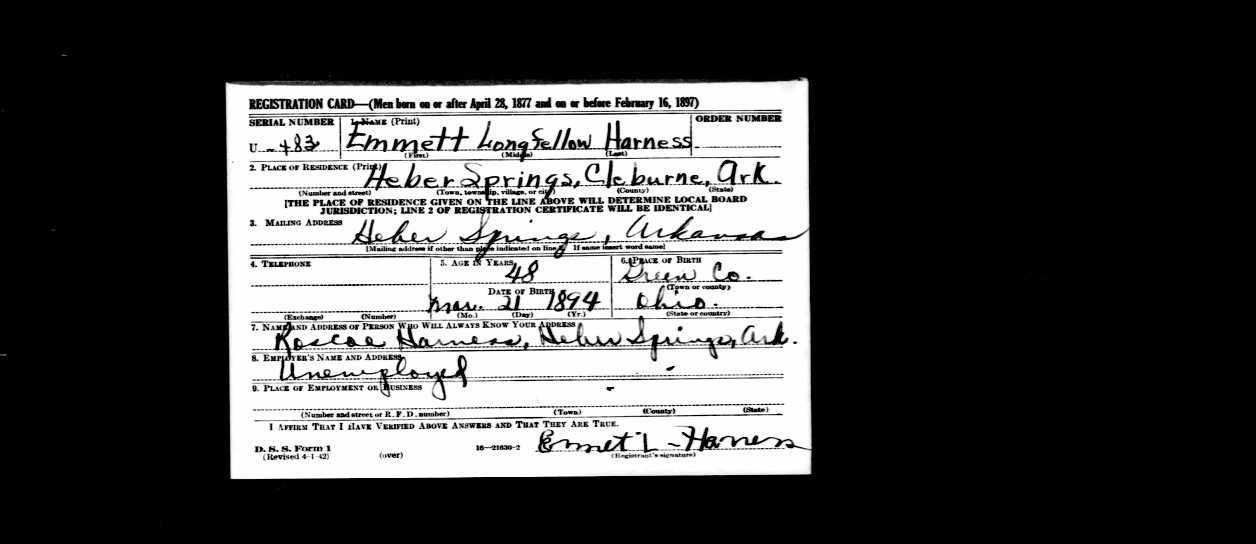 REGISTRATION CARD—(Men born on or after April 28, 1877 and on or before February 16, 1897)
SERIAL NUMBER 1. NAME (Print) ORDER NUMBER
U - 483 Emmett Longfellow Harness
(First) (Middle) (Last)
2. PLACE OF RESIDENCE (Print)
Heber Springs, Cleburne, Ark.
(Number and street) (Town, township, village, or city) (County) (State)
[THE PLACE OF RESIDENCE GIVEN ON THE LINE ABOVE WILL DETERMINE LOCAL BOARD
JURISDICTION; LINE 2 OF REGISTRATION CERTIFICATE WILL BE IDENTICAL]
3. MAILING ADDRESS
Heber Springs, Arkansas
[Mailing address if other than place indicated on line 2. If same insert word same]
4. TELEPHONE 5. AGE IN YEARS 6. PLACE OF BIRTH
48 Green Co.
DATE OF BIRTH (Town or county)
Mar. 21 1894 Ohio.
(Exchange) (Number) (Mo.) (Day) (Yr.) (State or country)
7. NAME AND ADDRESS OF PERSON WHO WILL ALWAYS KNOW YOUR ADDRESS
Roscoe Harness, Heber Springs, Ark.
8. EMPLOYER'S NAME AND ADDRESS
Unemployed -
9. PLACE OF EMPLOYMENT OR BUSINESS -
(Number and street or R. F. D. number) (Town) (County) (State)
I AFFIRM THAT I HAVE VERIFIED ABOVE ANSWERS AND THAT THEY ARE TRUE.
D. S. S. Form 1
(Revised 4-1-42) (over) 16—21630-2 Emmet L - Harness
(Registrant's signature)